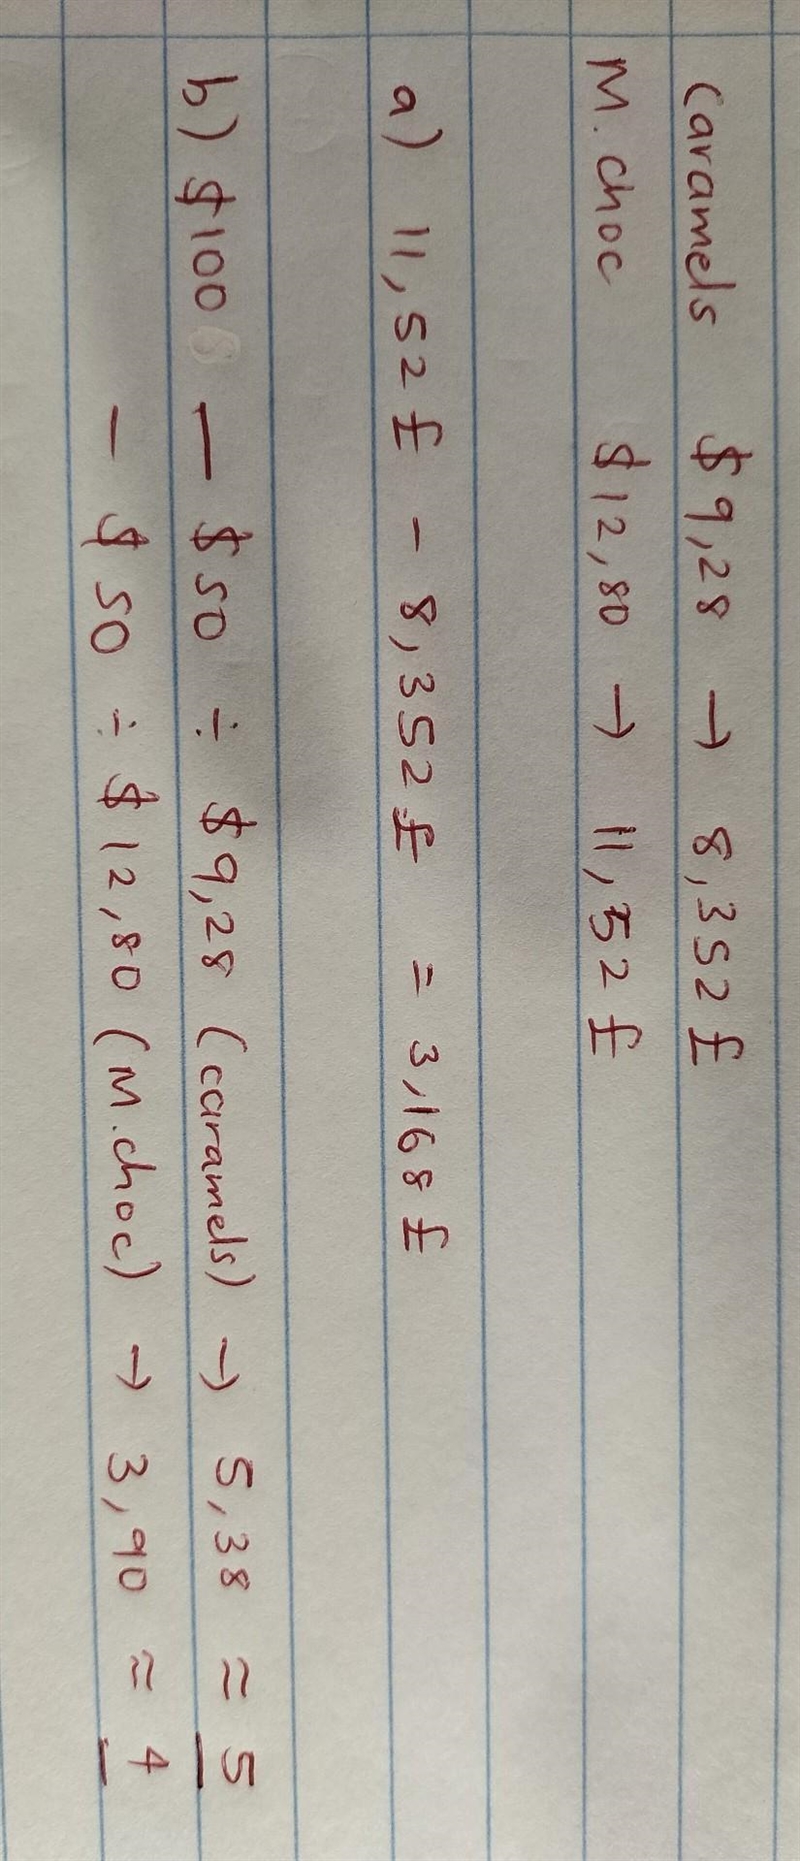 Caramels $9,28 → 8,352£
M. choc $12,80 → 11,52£
a) 11,52£ - 8,352£ = 3,168£
b) $100 — $50 ÷ $9,28 (caramels) → 5,38 ≈ 5
— $50 ÷ $12,80 (M.choc) → 3,90 ≈ 4